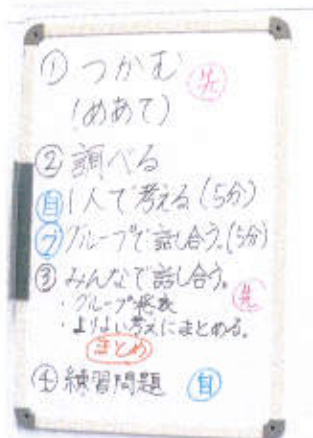 ① つかむ 先
(めあて)
② 調べる
自 1人で考える(5分)
グ グループで話し合う。(5分)
③ みんなで話し合う。
・グループ発表 先
・よりよい考えにまとめる。
まとめ
④ 練習問題 自